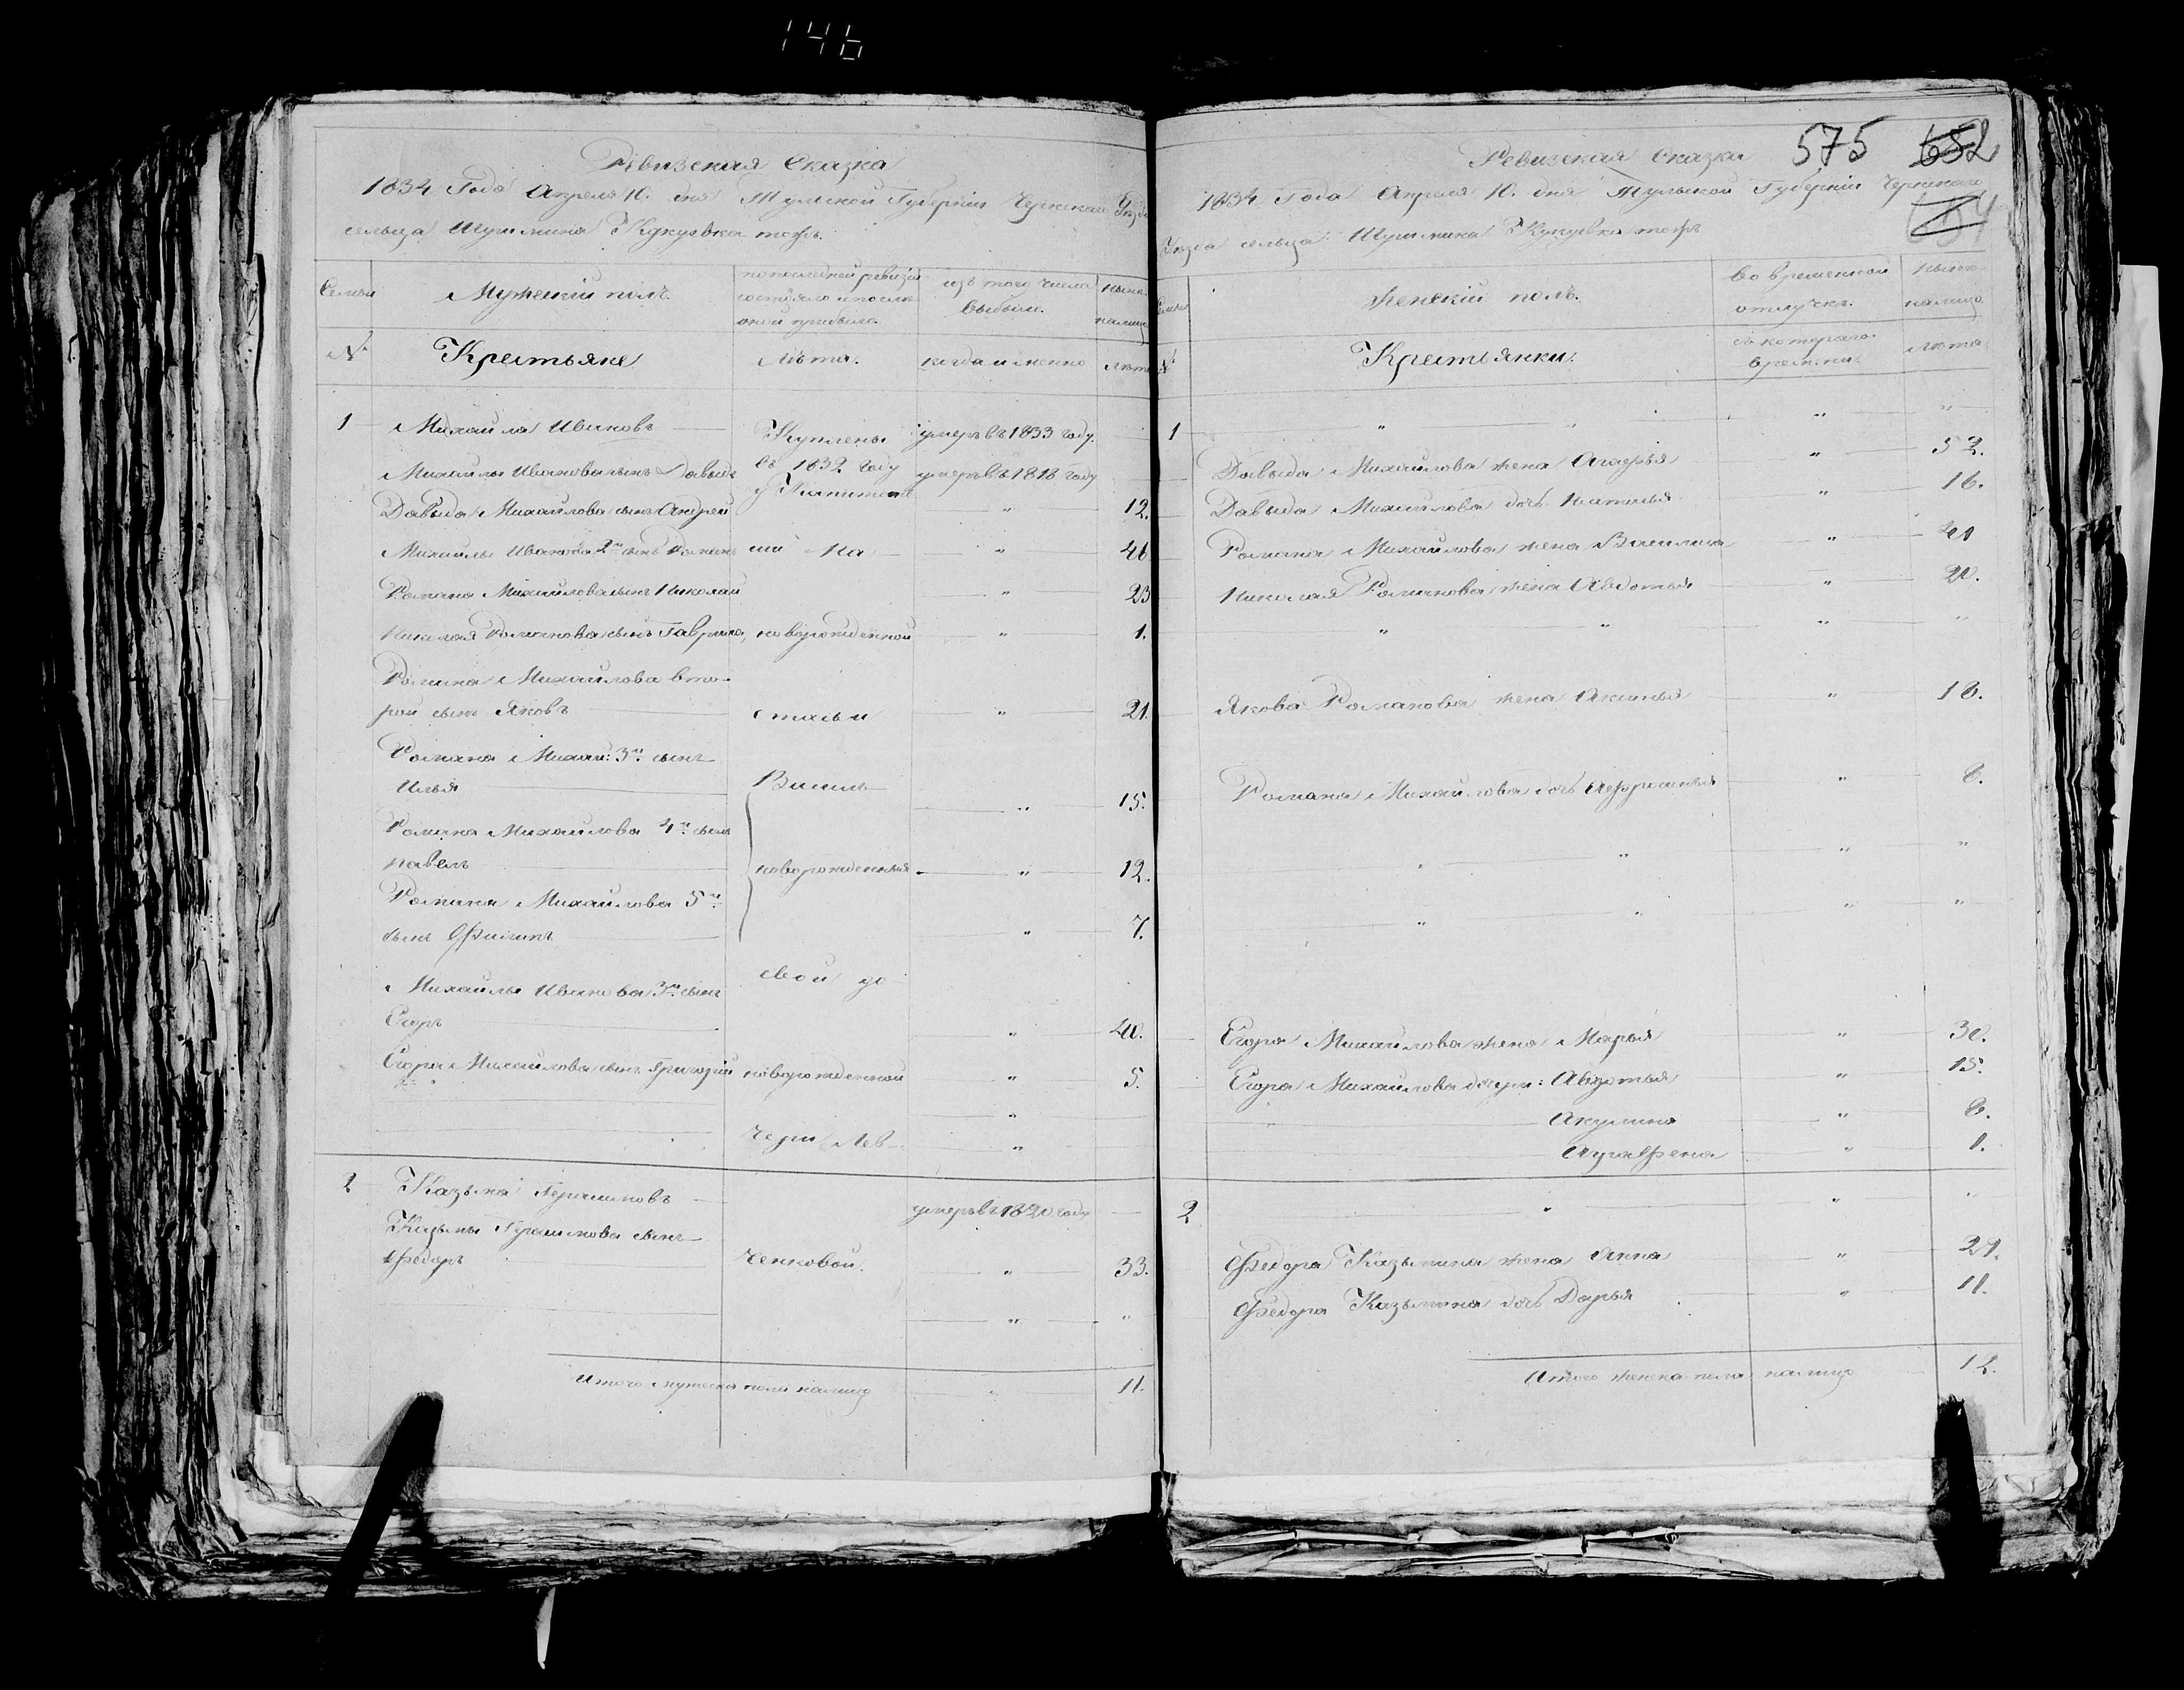 146
Ревизская Сказка
1834 Года Апреля 10. дня Тульской Губернии Чернскаго Уезда
сельца Шушмина Кукуевка тожъ.
Семьи
Мужескій полъ.
по последней ревизіи
состояло и после
оной прибыло.
изъ того числа
выбыло.
ныне
налицо
№
Крестьяне
Лѣта.
когда именно
лета
1 Михайла Ивановъ Куплены умеръ въ 1833 году.
Михайлы Иванова сынъ Давыдъ въ 1832 году умеръ въ 1818 году
Давыда Михайлова сынъ Андрей у " 12.
Михайлы Иванова 2й сынъ Романъ " 46
Романа Михайлова сынъ Николай " 23
Николая Романова сынъ Гаврила, новорожденной " 1.
Романа Михайлова вто-
рой сынъ Яковъ " 21.
Романа Михай: 3й сынъ
Илья Василь " 15.
Романа Михайлова 4й сынъ
Павелъ новорожденныя " 12.
Романа Михайлова 5й
сынъ Филипъ " 7.
Михайлы Иванова 3й сынъ свой до
Егоръ " 40.
Егора Михайлова сынъ Григорій новорожденной " 5.
"
чери Лев "
2 Казьма Герасимовъ умеръ въ 1820. году
Казьмы Герасимова сынъ
Федоръ ченковой. " 33.
" "
Итого мужеска пола налицо " 11.
575 652
Ревизская Сказка
1834 Года Апреля 10. дня Тульской Губерніи Чернскаго
Уезда сельца Шушмина Кукуевка тожъ
Семьи
Женскій полъ.
Во временной
отлучке.
ныне
налицо
№
Крестьянки.
съ котораго
времени.
лета
1 " " " "
Давыда Михайлова жена Агафья " 52.
Давыда Михайлова дочь Наталья " 16.
Романа Михайлова жена Василиса " 41
Николая Романова жена Авдотья " 20.
" " " "
Якова Романова жена Аксинья " 18.
Романа Михайлова дочь Афросинья " 8.
" " " "
" " " "
Егора Михайлова жена Марья " 30.
Егора Михайлова дочери: Авдотья " 15.
Акулина " 8.
Аграфена " 1.
2 " " "
Федора Казьмина жена Анна " 29.
Федора Казьмина дочь Дарья " 11.
Итого женска пола налицо 12.